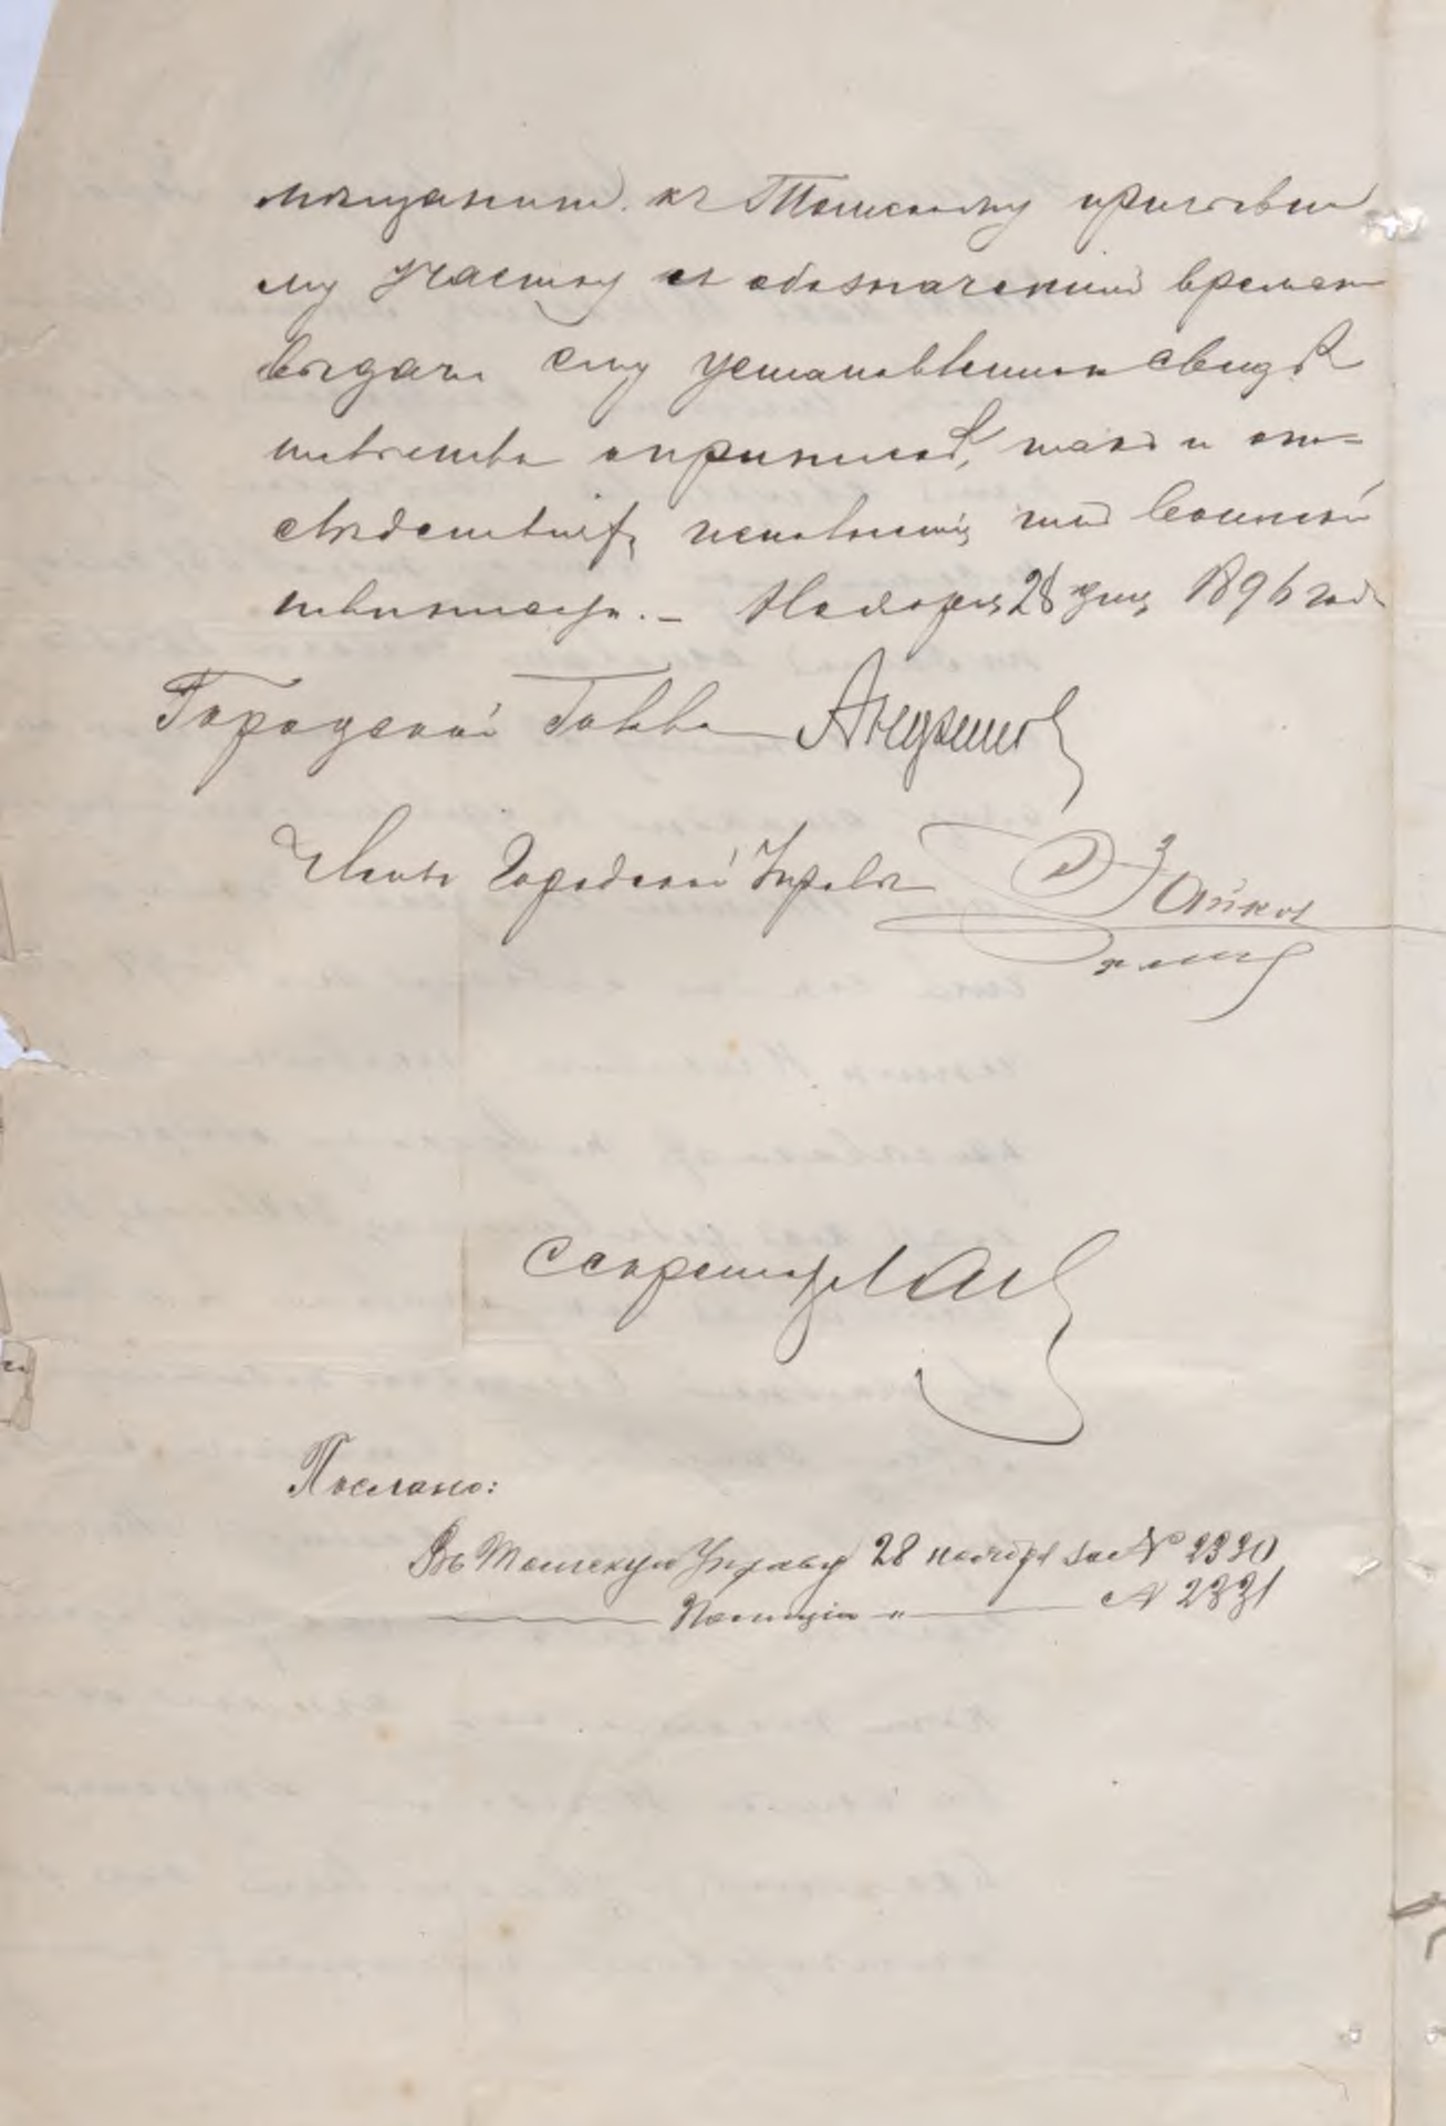 мѣщанина къ Томскому призывно
му участку съ обозначеніемъ времени
выдачи ему установленнаго свидѣ
тельства о припискѣ, такъ и
исполненіи имъ воинской
повинности. – Ноября 28 дня 1896 года
Городской Голова
Членъ Городской Управы Зайковъ
Секретарь
Послано:
Въ Томскую Управу 28 ноября за № 2330
Полицію " № 2331